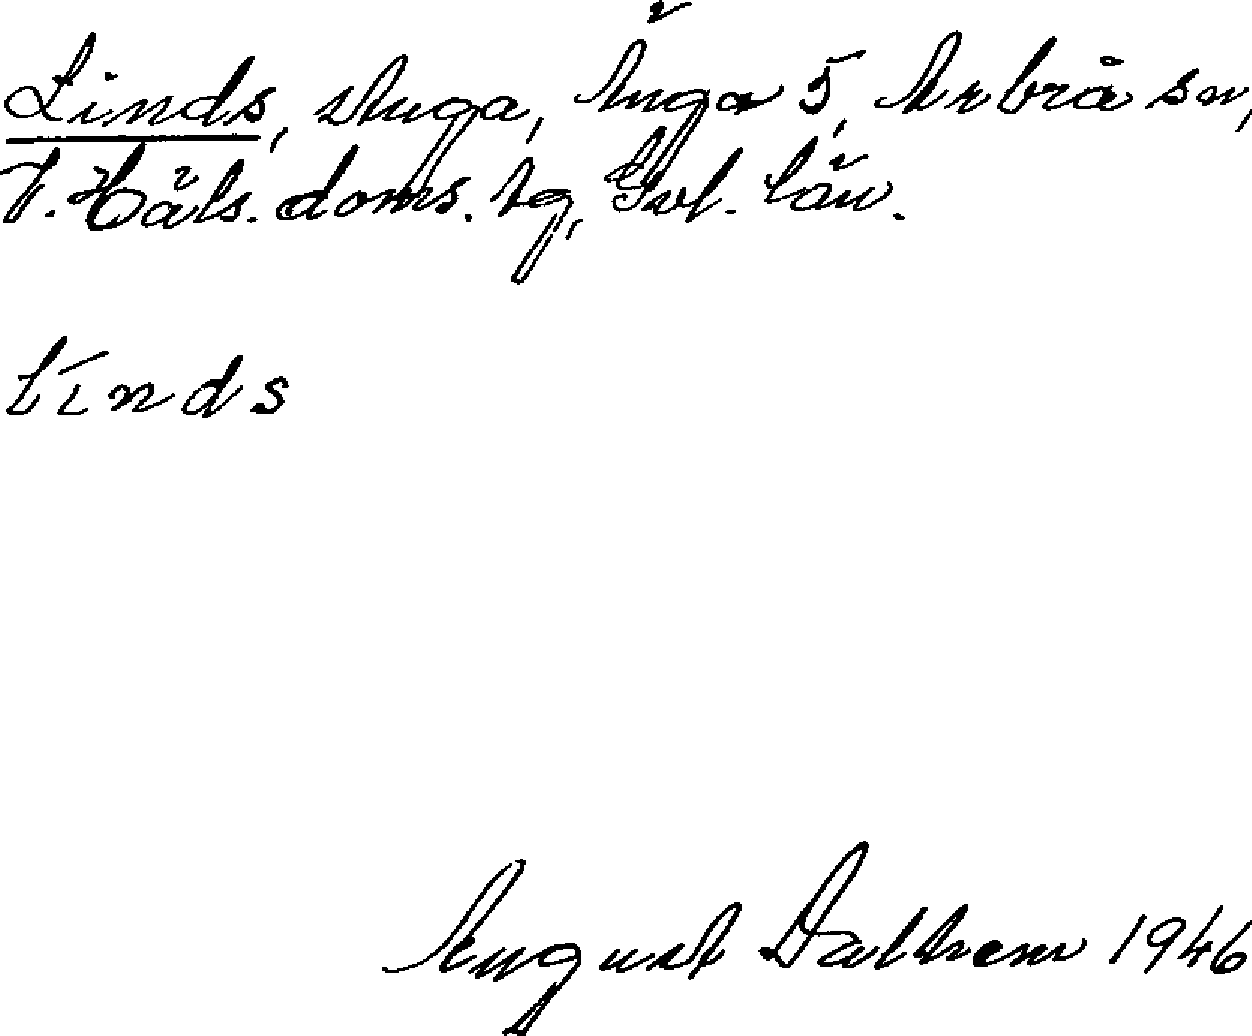 Linds, stuga, Änga 5, Arbrå sn,
V. Häls. doms. tg, Gvl. län.
línds
August Dalhem 1946